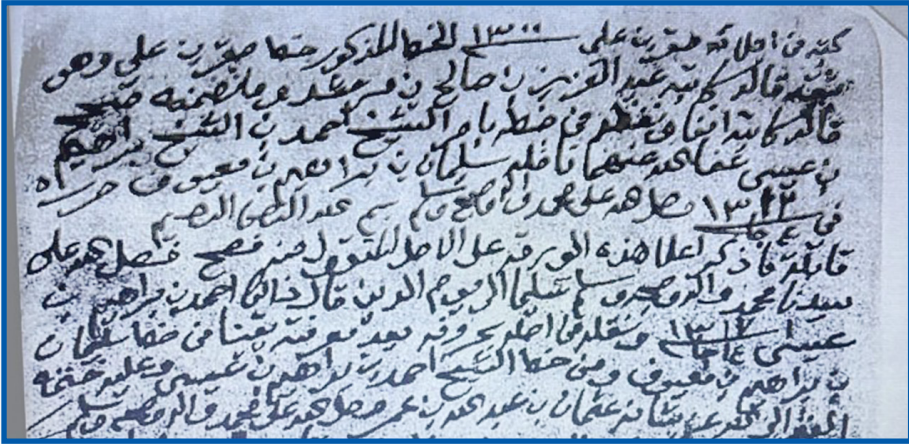 كتبه من املائه صقر بن علي ١٣٠٠ الخط المذكور خط صقر بن علي وهو
ثقة قاله كاتبه عبد العزيز بن صالح بن مرشد وما تضمنه صحيح
قاله كاتبه ابقاه ونقله من خطه بامر الشيخ احمد بن الشيخ ابراهيم
بن عيسى عفا الله عنهما ناقله سليمان بن ابراهيم بن معيوف حرر
في ١٣٢٢ وصلى الله على محمد واله وصحبه وسلم بسم الله الرحمن الرحيم
قابلة ما ذكر اعلا هذه الورقة على الاصل المنقول منه فصح وصلى الله على
سيدنا محمد واله وصحبه وسلم تسليما الى يوم الدين قال ذالك احمد بن ابراهيم بن
عيسى ١٣١٢ ونقله من اصله بحروفه بعد معرفته يقينا من خط سليمان
بن ابراهيم بن معيوف ومن خط الشيخ احمد بن ابراهيم بن عيسى وعليه ختمه
الفقير الى الله عثمان بن عبد الله بن وصلى الله على محمد واله وصحبه وسلم